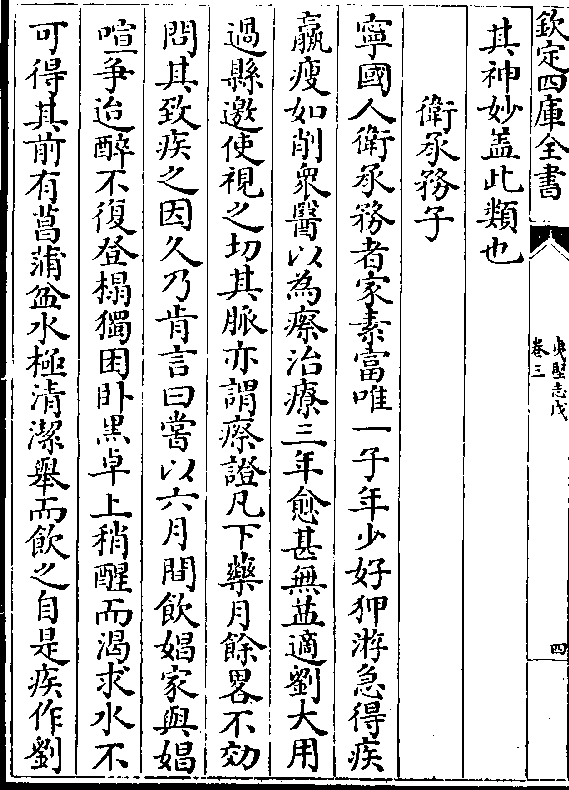 欽定四庫全書
夷堅志戊
卷三
四
其神妙盖此類也
衛承務子
寧國人衛承務者家素富唯一子年少好狎游急得疾
羸瘦如削衆醫以為瘵治療三年愈甚無益適劉大用
過縣邀使視之切其脈亦謂瘵證凡下藥月餘畧不効
問其致疾之因久乃肯言曰嘗以六月間飲娼家與娼
喧爭迨醉不復登榻獨困卧黒卓上稍醒而渴求水不
可得其前有菖蒲盆水極清潔舉而飲之自是疾作劉